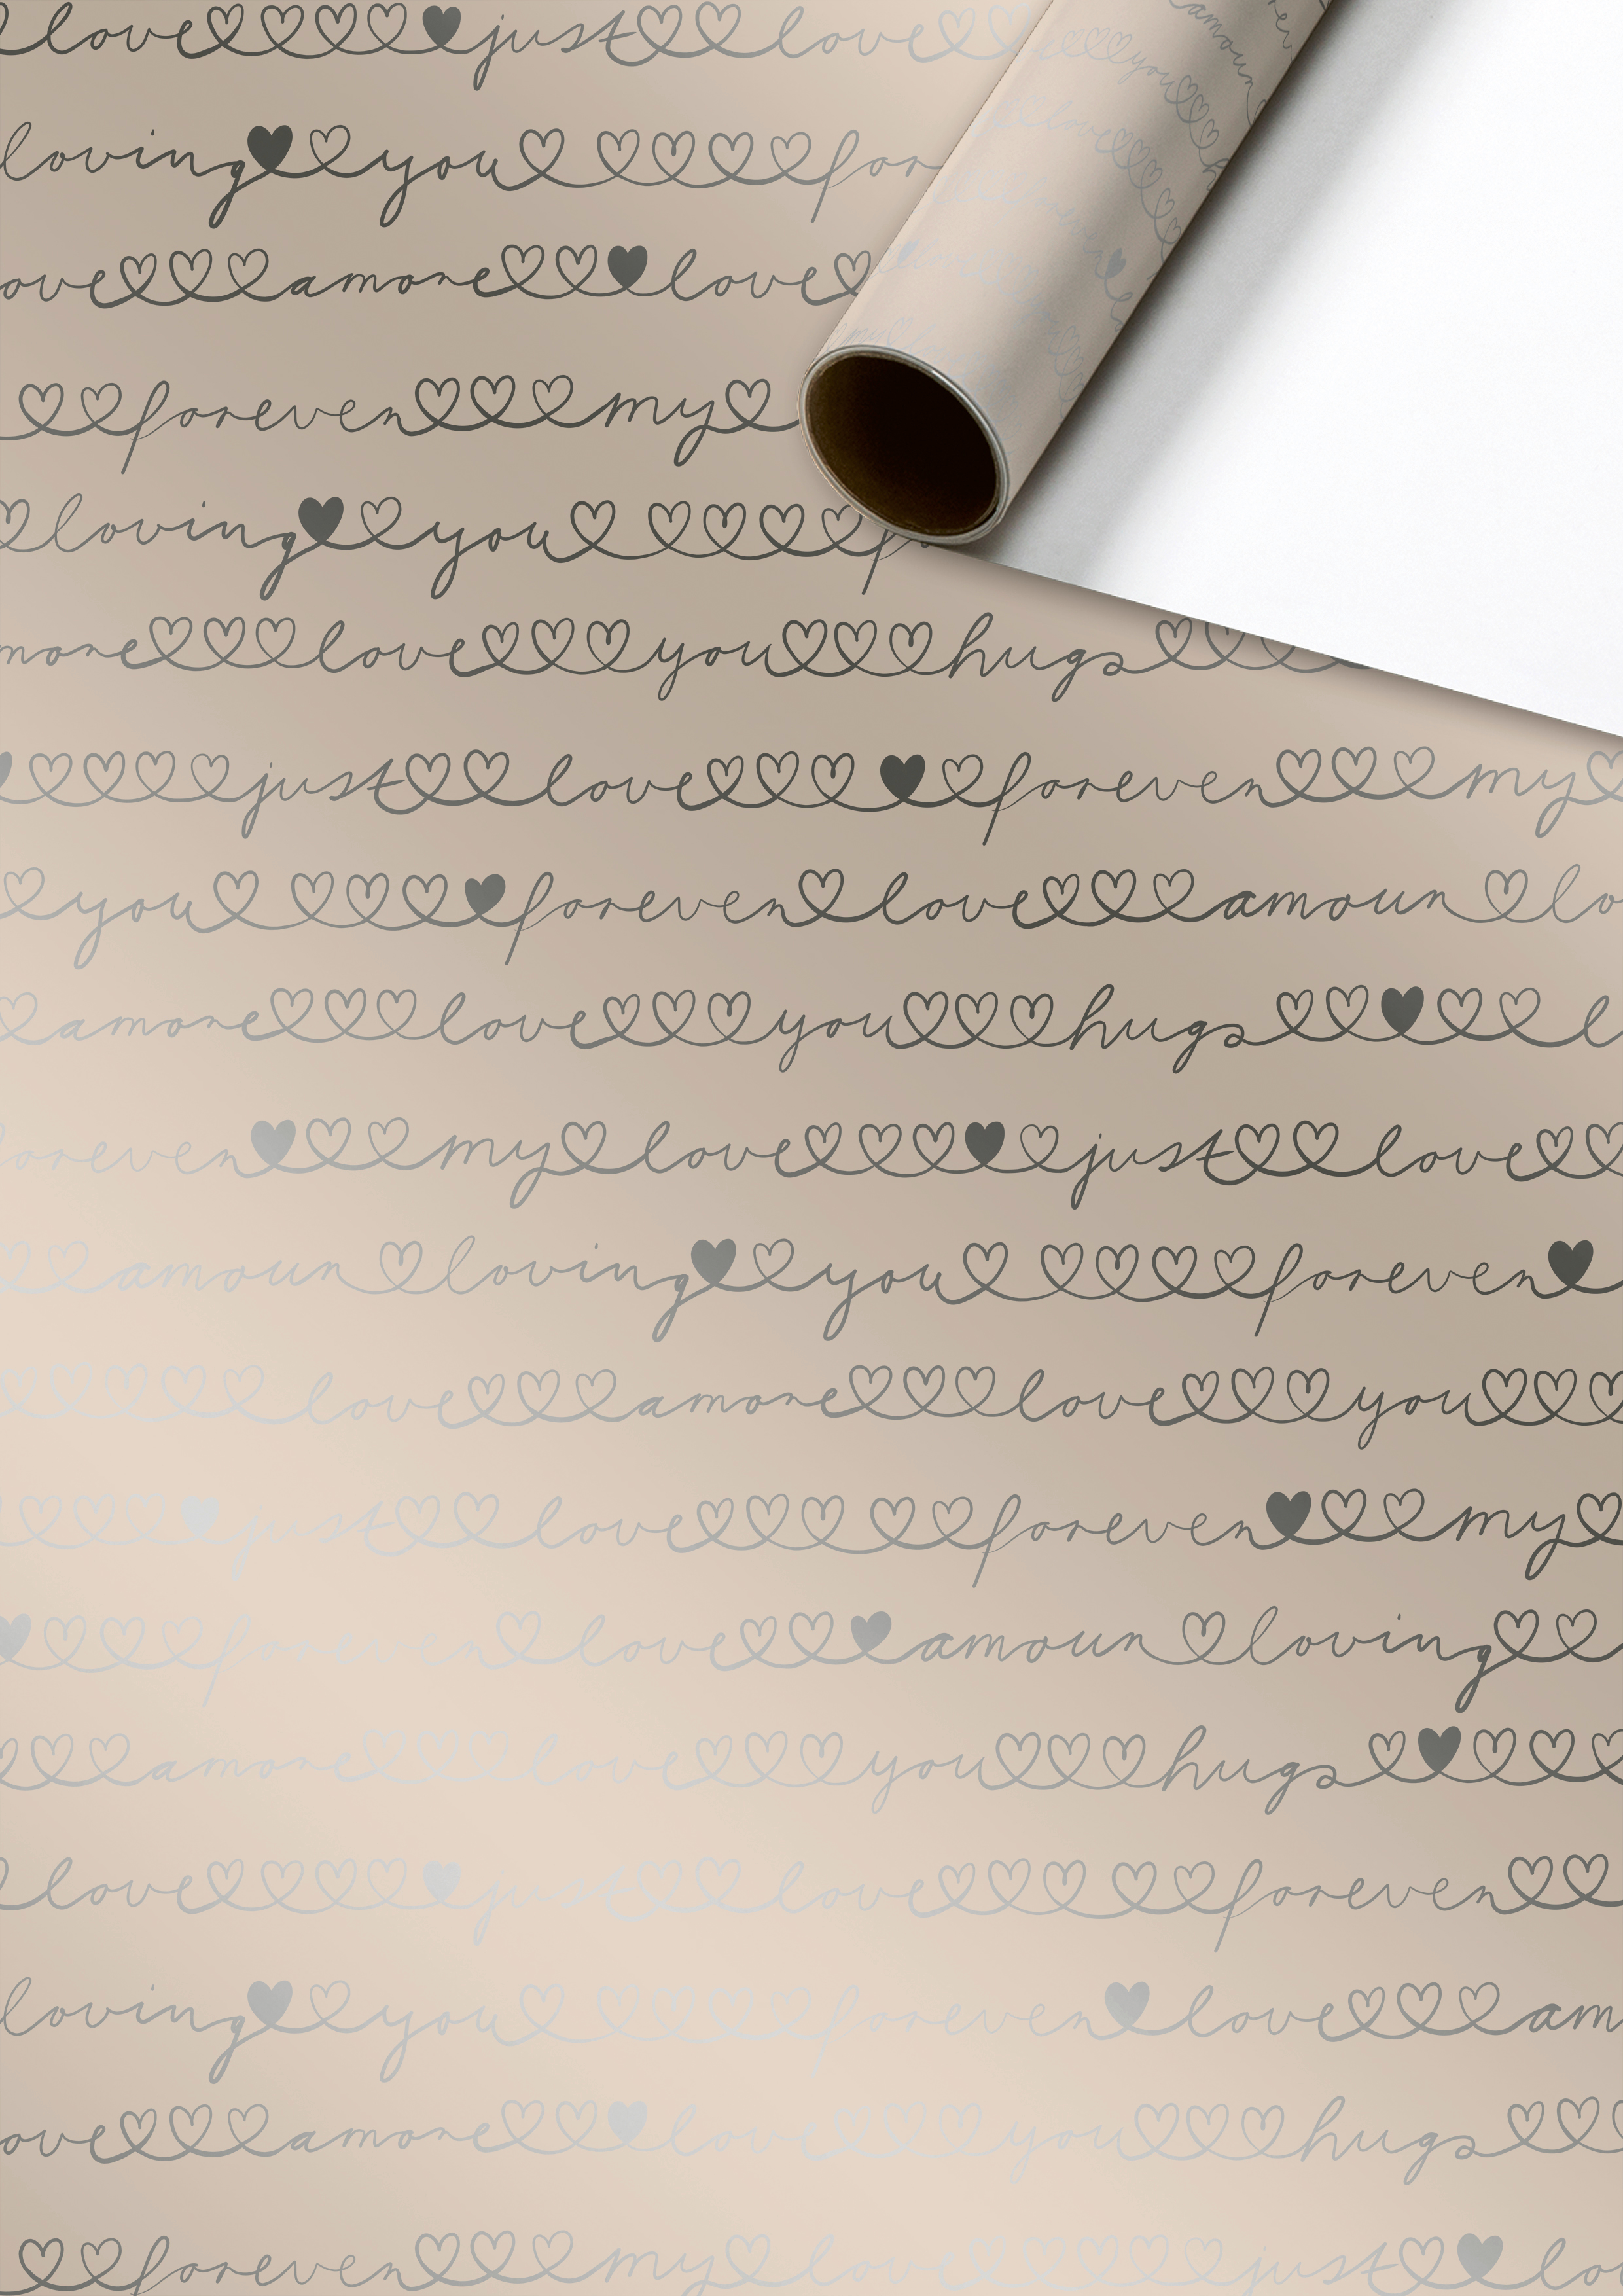 love just love
loving you for
ove amore love
forever my
loving you
more love you hugs
just love forever my
you forever love amour lo
amore love you hugs l
orever my love just love
amour loving you forever
love amore love you
just love forever my
forever love amour loving
amore love you hugs
love just love forever
loving you forever love am
ove amore love you hugs
forever my love just lo
amour
you
love